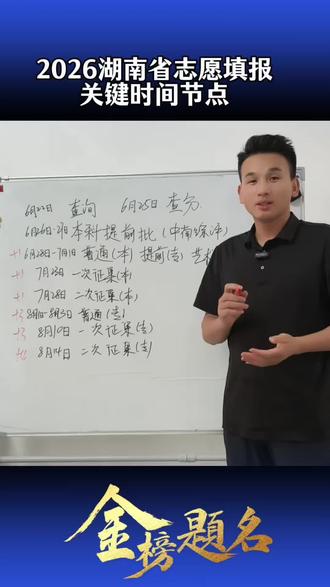 2026湖南省志愿填报
关键时间节点
6月22日 查询 6月25日 查分
本科提前批
6月28日-7月1日 普通(本) 提前(专)
7月23日 一次征集(本)
7月28日 二次征集(本)
8月1日-8月3日 普通(专)
8月10日 一次征集(专)
8月14日 二次征集(专)
金榜题名